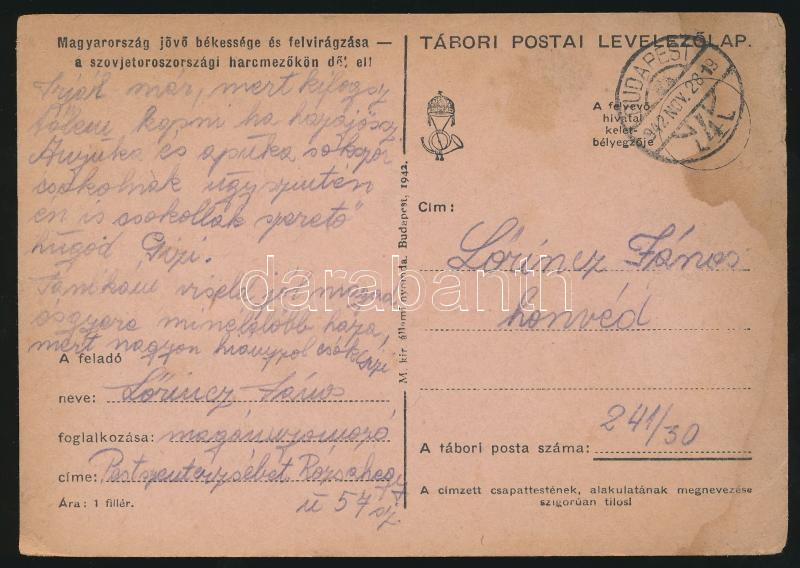 Magyarország jövő békessége és felvirágzása —
a szovjetoroszországi harcmezőkön dől el!
Irjál már, mert kifogsz
tőlem kapni ha hazajösz
Anyuka és apuka sokszor
csókolnak úgyszintén
én is csokollak szerető
hugod Gizi.
viseld jól magad
és gyere minélelőbb haza,
mert nagyon hianyzol csók Gizi
A feladó
neve: Lőrincz János
foglalkozása:
címe: Pestszenterzsébet Rózsahegy
u 54 sz
Ára: 1 fillér.
M. kir. állami nyomda. Budapest, 1942.
TÁBORI POSTAI LEVELEZŐLAP.
BUDAPEST
942 NOV. 28 19
A felvevő
hivatal
kelet-
bélyegzője
Cím:
Lőrincz János
honvéd
A tábori posta száma: 241/30
A címzett csapattestének, alakulatának megnevezése
szigorúan tilos!
darabanth